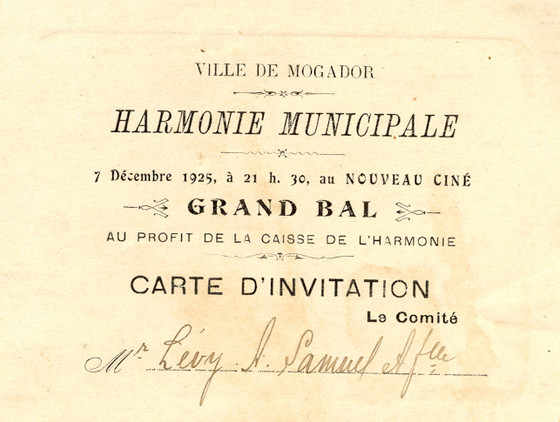 VILLE DE MOGADOR
HARMONIE MUNICIPALE
7 Décembre 1925, à 21 h. 30, au NOUVEAU CINÉ
GRAND BAL
AU PROFIT DE LA CAISSE DE L'HARMONIE
CARTE D'INVITATION
Le Comité
Mr Lévy A. Samuel & flle